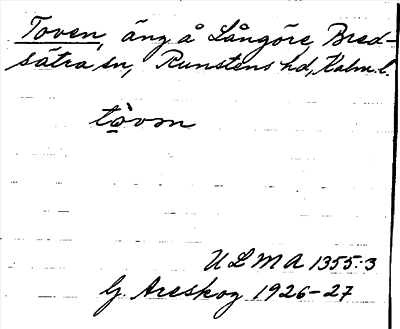 Toven, äng å Långöre, Bred-
sätra sn, Runstens hd, Kalm. l.
tòvm
ULMA 1355:3
G. Areskog 1926-27